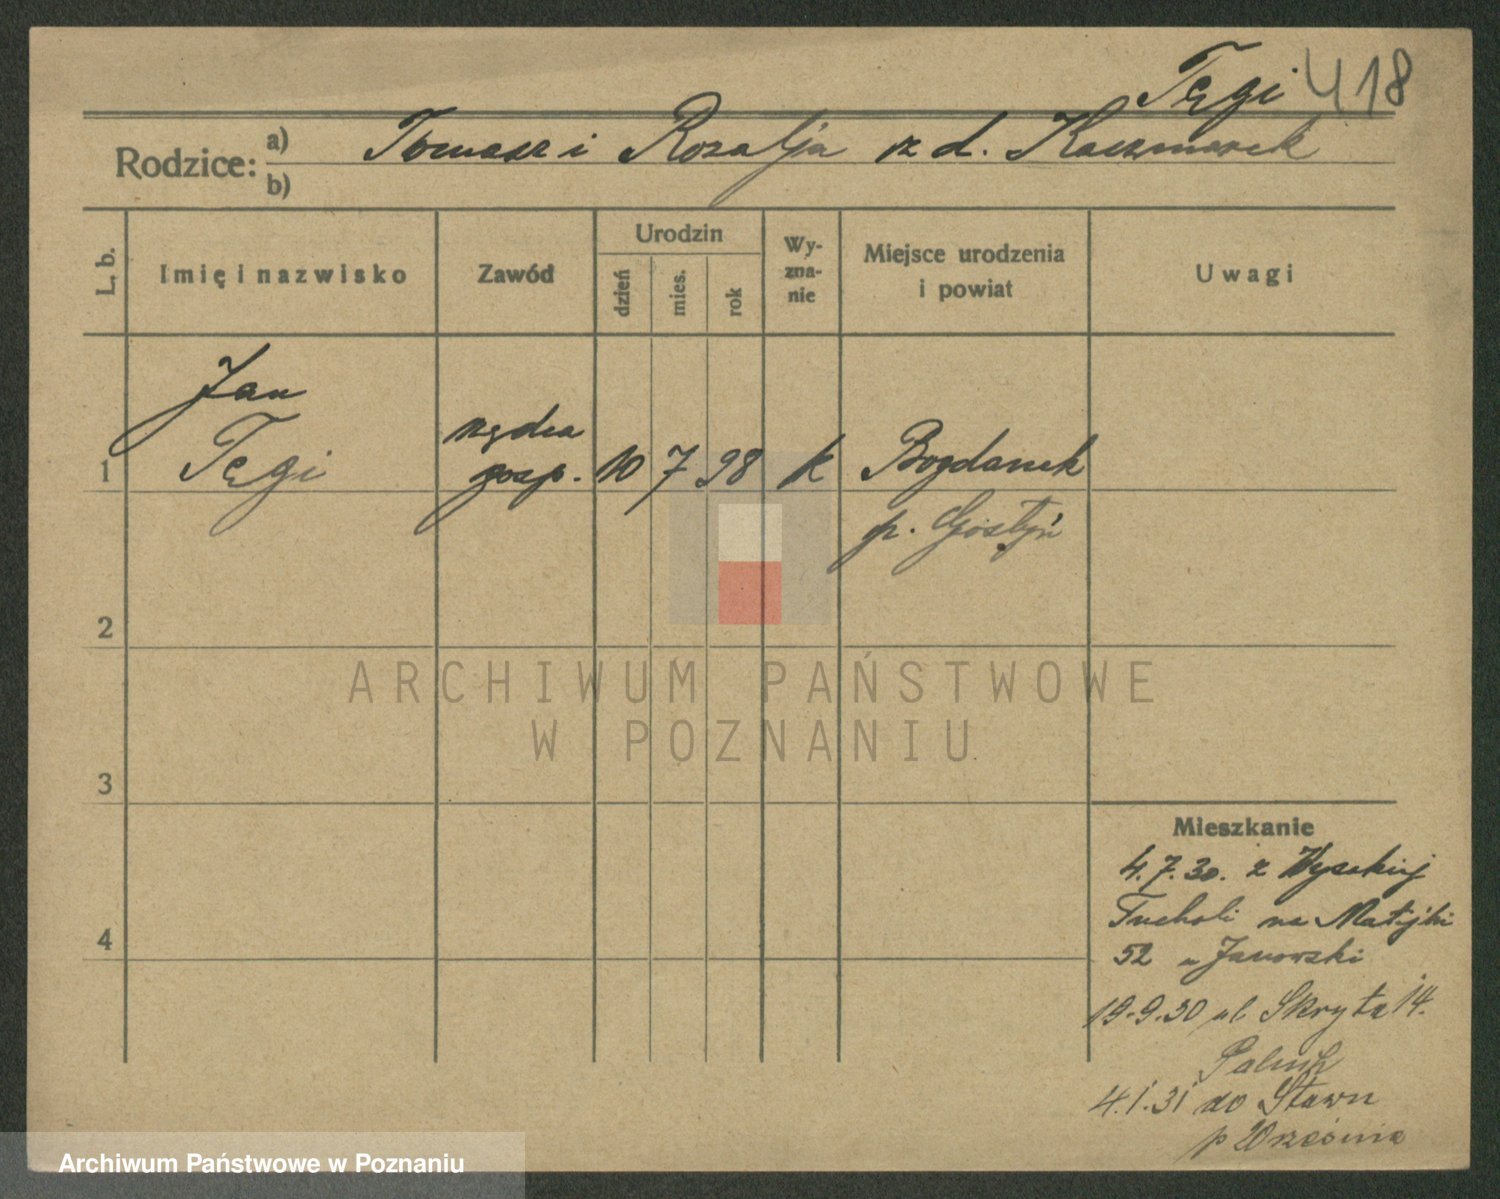 Tęgi 418
Rodzice: a) Tomasz i Rozalja z d. Kaczmarek
b)
L. b.
Imię i nazwisko
Zawód
Urodzin
dzień
mies.
rok
Wy-
zna-
nie
Miejsce urodzenia
i powiat
Uwagi
1
Jan
Tęgi
rządca
gosp.
10 7 98
k
Bogdanek
p. Gostyń
2
3
4
ARCHIWUM PAŃSTWOWE
W POZNANIU
Mieszkanie
4.7.30. z Wysokiej
Tucholi na Matejki
52 u Janowski
19.9.30 ul Skryta 14.
4.1.31 do Stawu
p Września
Archiwum Państwowe w Poznaniu